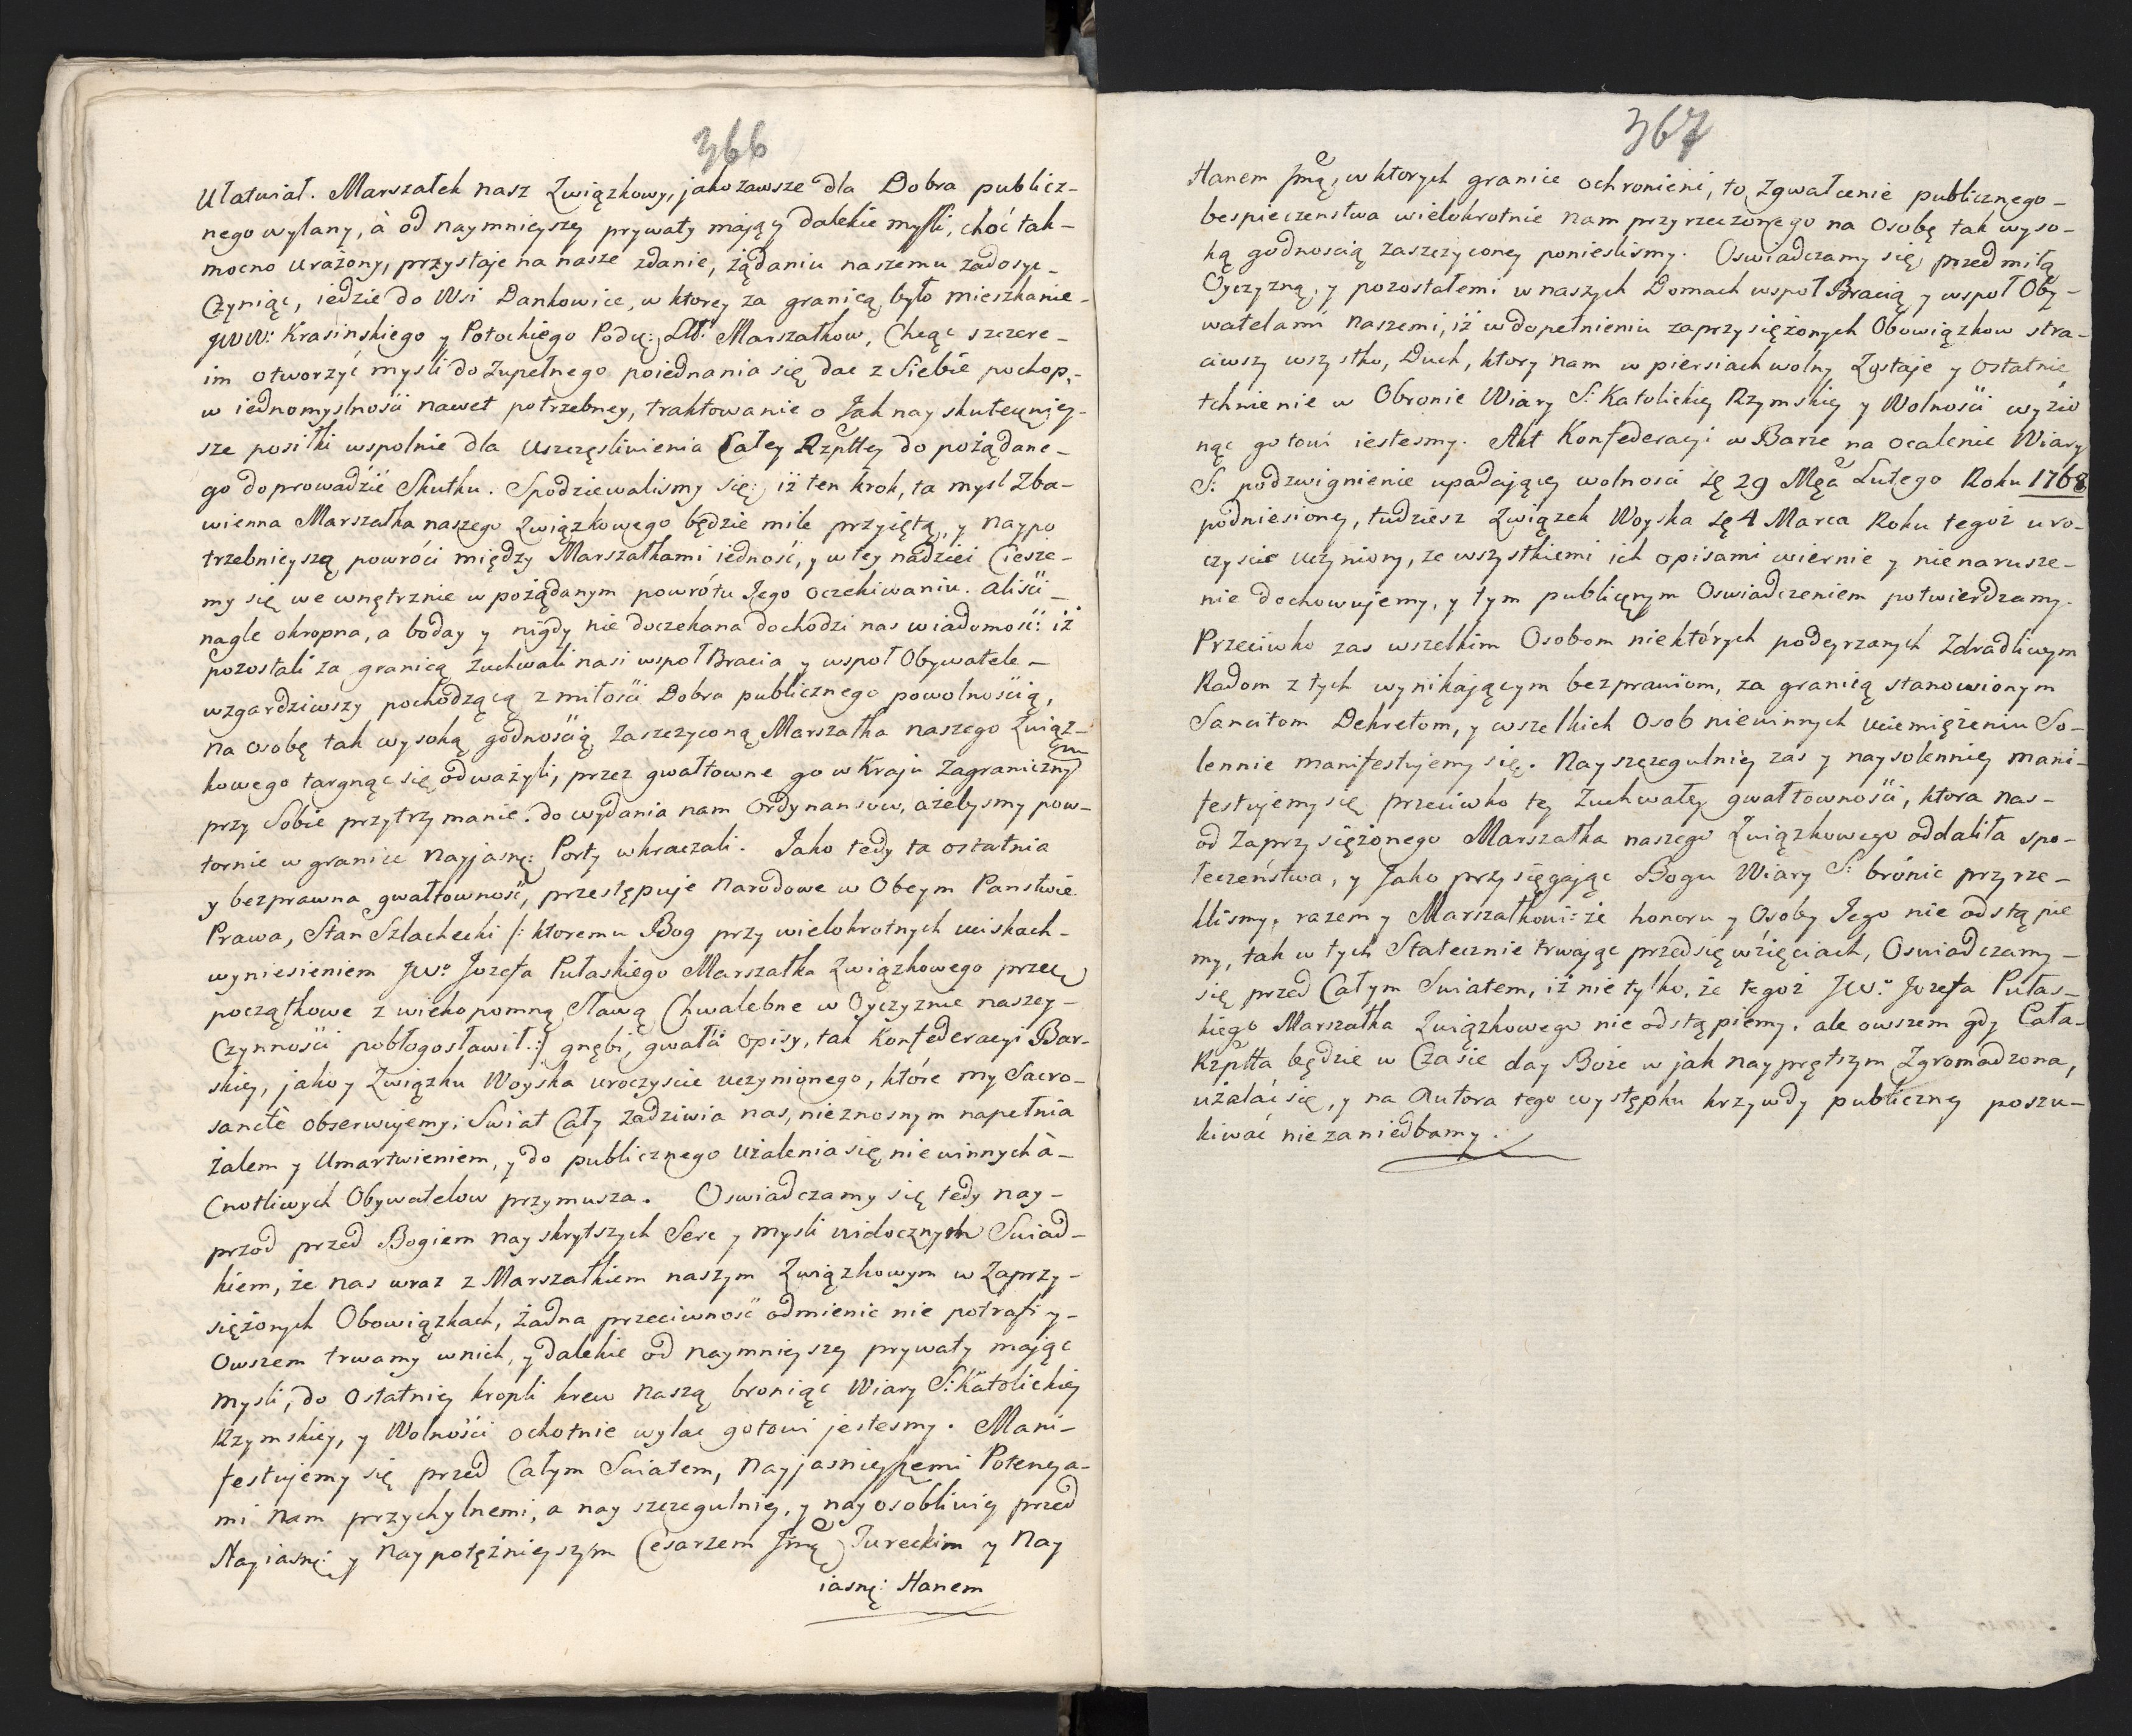 366
Ułatwiał. Marszałek nasz Związkowy, jako zawsze dla Dobra publicz-
nego wylany, à od naymnieyszey prywaty maiący dalekie mysli, choć tak-
mocno urażony, przystaje na nasze zdanie, żądaniu naszemu zadosyc-
Czyniąc, iedzie do Wsi Dankowice, w ktorey za granicą było mieszkanie-
JWW: Krasinskiego y Potockiego Podcz: Lit: Marszałkow, Chcąc szczere-
im otworzyć mysli do zupełnego poiednania się dac z Siebie pochop,-
w iednomyslnosci nawet potrzebney, traktowanie o Jak nayskuteczniey-
sze posiłki wspolnie dla uszczęsliwienia Całey Rzpltey do pożądane-
go doprowadzić Skutku. Spodziewalismy się: iż ten krok, ta mysl Zba-
wienna Marszałka naszego Związkowego będzie mile przyiętą, y naypo
trzebnieyszą powróci między Marszałkami iedność, y w tey nadziei Ciesze-
my się we wnętrznie w pożądanym powrótu Jego oczekiwaniu. alisci-
nagle okropna, a boday y nigdy nie doczekana dochodzi nas wiadomość: iż
pozostali za granicą zuchwali nasi wspoł Bracia y wspoł Obywatele-
wzgardziwszy pochodzącą z miłosci Dobra publicznego powolnoscią,
na osobę tak wysoką godnoscią zaszczyconą Marszałka naszego Związ-
kowego targnąc się odważyli, przez gwałtowne go w Kraju Zagranicznym
przy Sobie przytrzymanie. do wydania nam Ordynansow, ażebysmy pow-
tornie w granice Nayjasnę: Porty wkraczali. Jako tedy ta ostatnia
y bezprawna gwałtowność, przestępuje Narodowe w Obcym Panstwie
Prawa, Stan Szlachecki /: ktoremu Bog przy wielokrotnych uciskach-
wyniesieniem JWo Jozefa Pułaskiego Marszałka Związkowego przez
początkowe z wiekopomną Sławą Chwalebne w Oyczyznie naszey-
Czynnosci pobłogosławił :/ gnębi, gwałci opisy, tak Konfederacyi Bar-
skiey, jako y Związku Woyska uroczyscie uczynionego, które my Sacro-
sanctè obserwujemy; Swiat Cały zadziwia nas, nieznosnym napełnia
żalem y Umartwieniem, y do publicznego użalenia się niewinnych à-
Cnotliwych Obywatelow przymusza. Oswiadczamy się tedy nay-
przod przed Bogiem nayskrytszych Serc y mysli widocznym Swiad-
kiem, że nas wraz z Marszałkiem naszym Związkowym w Zaprzy-
siężonych Obowiązkach, żadna przeciwność odmienic nie potrafi y-
Owszem trwamy w nich, y dalekie od naymnieyszey prywaty mając
mysli, do ostatniey kropli krew naszą broniąc Wiary S: Katolickiey
Rzymskiey, y Wolnosci ochotnie wylac gotowi jestesmy. Mani-
festujemy się przed Całym Swiatem, Nayjasnieyszemi Potencya-
mi Nam przychylnemi, a nayszczegulniey, y nayosobliwiey przed
Nayiasnę: y Naypotężnieyszym Cesarzem Jmę Tureckim y Nay
iasnę: Hanem
367
Hanem Jmę, w ktorych granice ochronieni, to zgwałcenie publicznego-
bespieczenstwa wielokrotnie nam przyrzeczonego na Osobę tak wyso-
ką godnoscią zaszczyconey ponieslismy. Oswiadczamy się przed miłą
Oyczyzną, y pozostałemi w naszych Domach wspoł Bracią y wspoł Oby-
watelami naszemi, iż w dopełnieniu zaprzysiężonych Obowiązkow stra-
ciwszy wszystko, Duch, ktory nam w piersiach wolny Zostaje y ostatnie
tchnienie w Obronie Wiary S: Katolickiey Rzymskiey y Wolnosci wyzio
nąc gotowi iestesmy. Akt Konfederacyi w Barze na ocalenie Wiary
S: podzwignienie upadającey wolnosci Zę 29 Męa Lutego Roku 1768
podniesioney, tudziesz Związek Woyska Zę 4 Marca Roku tegoż uro-
czyscie uczyniony, ze wszystkiemi ich opisami wiernie y nienarusze-
nie dochowujemy, y tym publicznym Oswiadczeniem potwierdzamy.
Przeciwko zas wszelkim Osobom niektórych podeyrzanych Zdradliwym
Radom z tych wynikającym bezprawiom, za granicą stanowionym
Sancitom Dekretom, y wszelkich Osob niewinnych uciemiężeniu So-
lennie manifestujemy się. Nayszczegulniey zas y naysolenniey mani-
festujemy się przeciwko tey Zuchwałey gwałtownosci, ktora nas-
od zaprzysiężonego Marszałka naszego Związkowego oddaliła spo-
łeczeństwa, y Jako przysięgając Bogu Wiary S: brónic przyrze-
klismy, razem y Marszałkowi: że honoru y Osoby Jego nie odstąpie
my, tak w tych Statecznie trwając przedsięwzięciach, Oswiadczamy-
się przed Całym Swiatem, iż nie tylko, że tegoż JWo Jozefa Pułas-
kiego Marszałka Związkowego nie odstąpiemy, ale owszem gdy Cała-
Rzplta będzie w Czasie day Boże w jak nayprętszym Zgromadzona,
użalać się, y na Autora tego występku krzywdy publiczney poszu-
kiwać nie zaniedbamy.